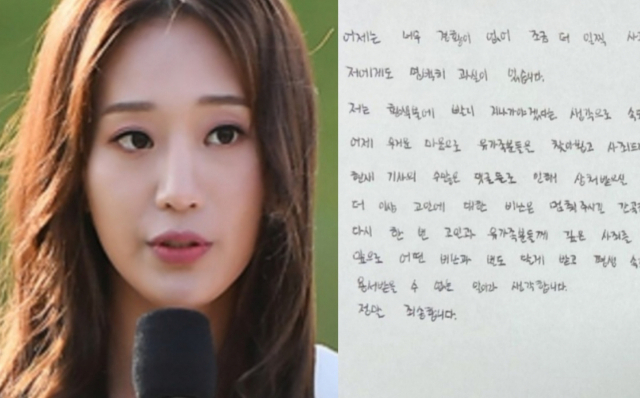 어제는 너무 경황이 없어 조금 더 일찍 사
저에게도 명백히 과실이 있습니다.
저는 황색불에 빨리 지나가야겠다는 생각으로 속
어제 유가족분들은 찾아뵙고 사죄드
현재 기사의 수많은 댓글들로 인해 상처받으신
더 이상 고인에 대한 비난은 멈춰주시길 간곡
다시 한 번 고인과 유가족분들께 깊은 사죄를
앞으로 어떤 비난과 벌도 달게 받고 평생 속
용서받을 수 없는 일이라 생각합니다.
정말 죄송합니다.